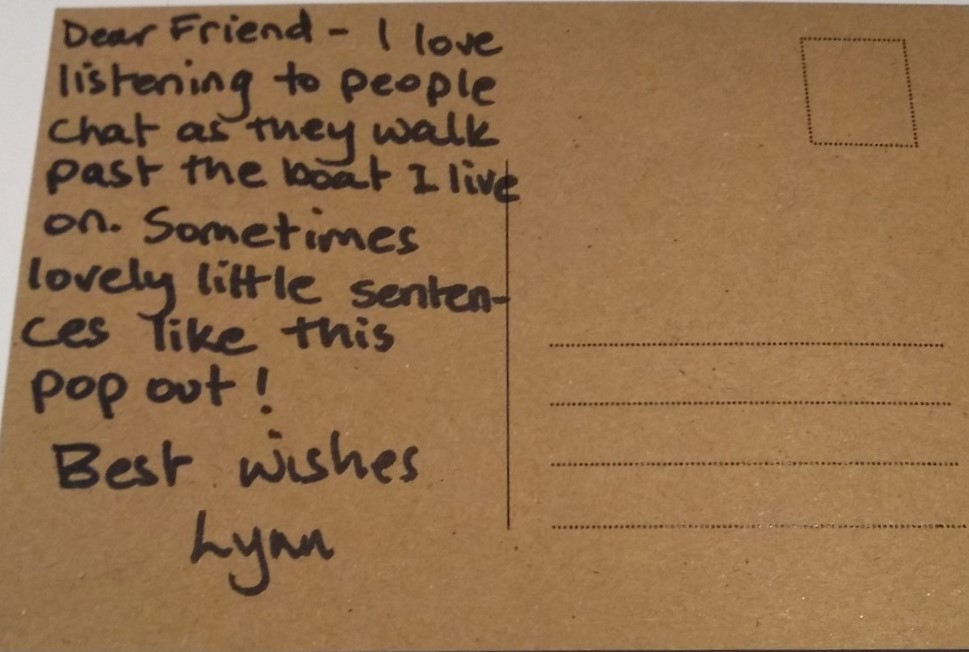 Dear Friend - I love
listening to people
chat as they walk
past the boat I live
on. Sometimes
lovely little senten-
ces like this
pop out!
Best wishes
Lynn